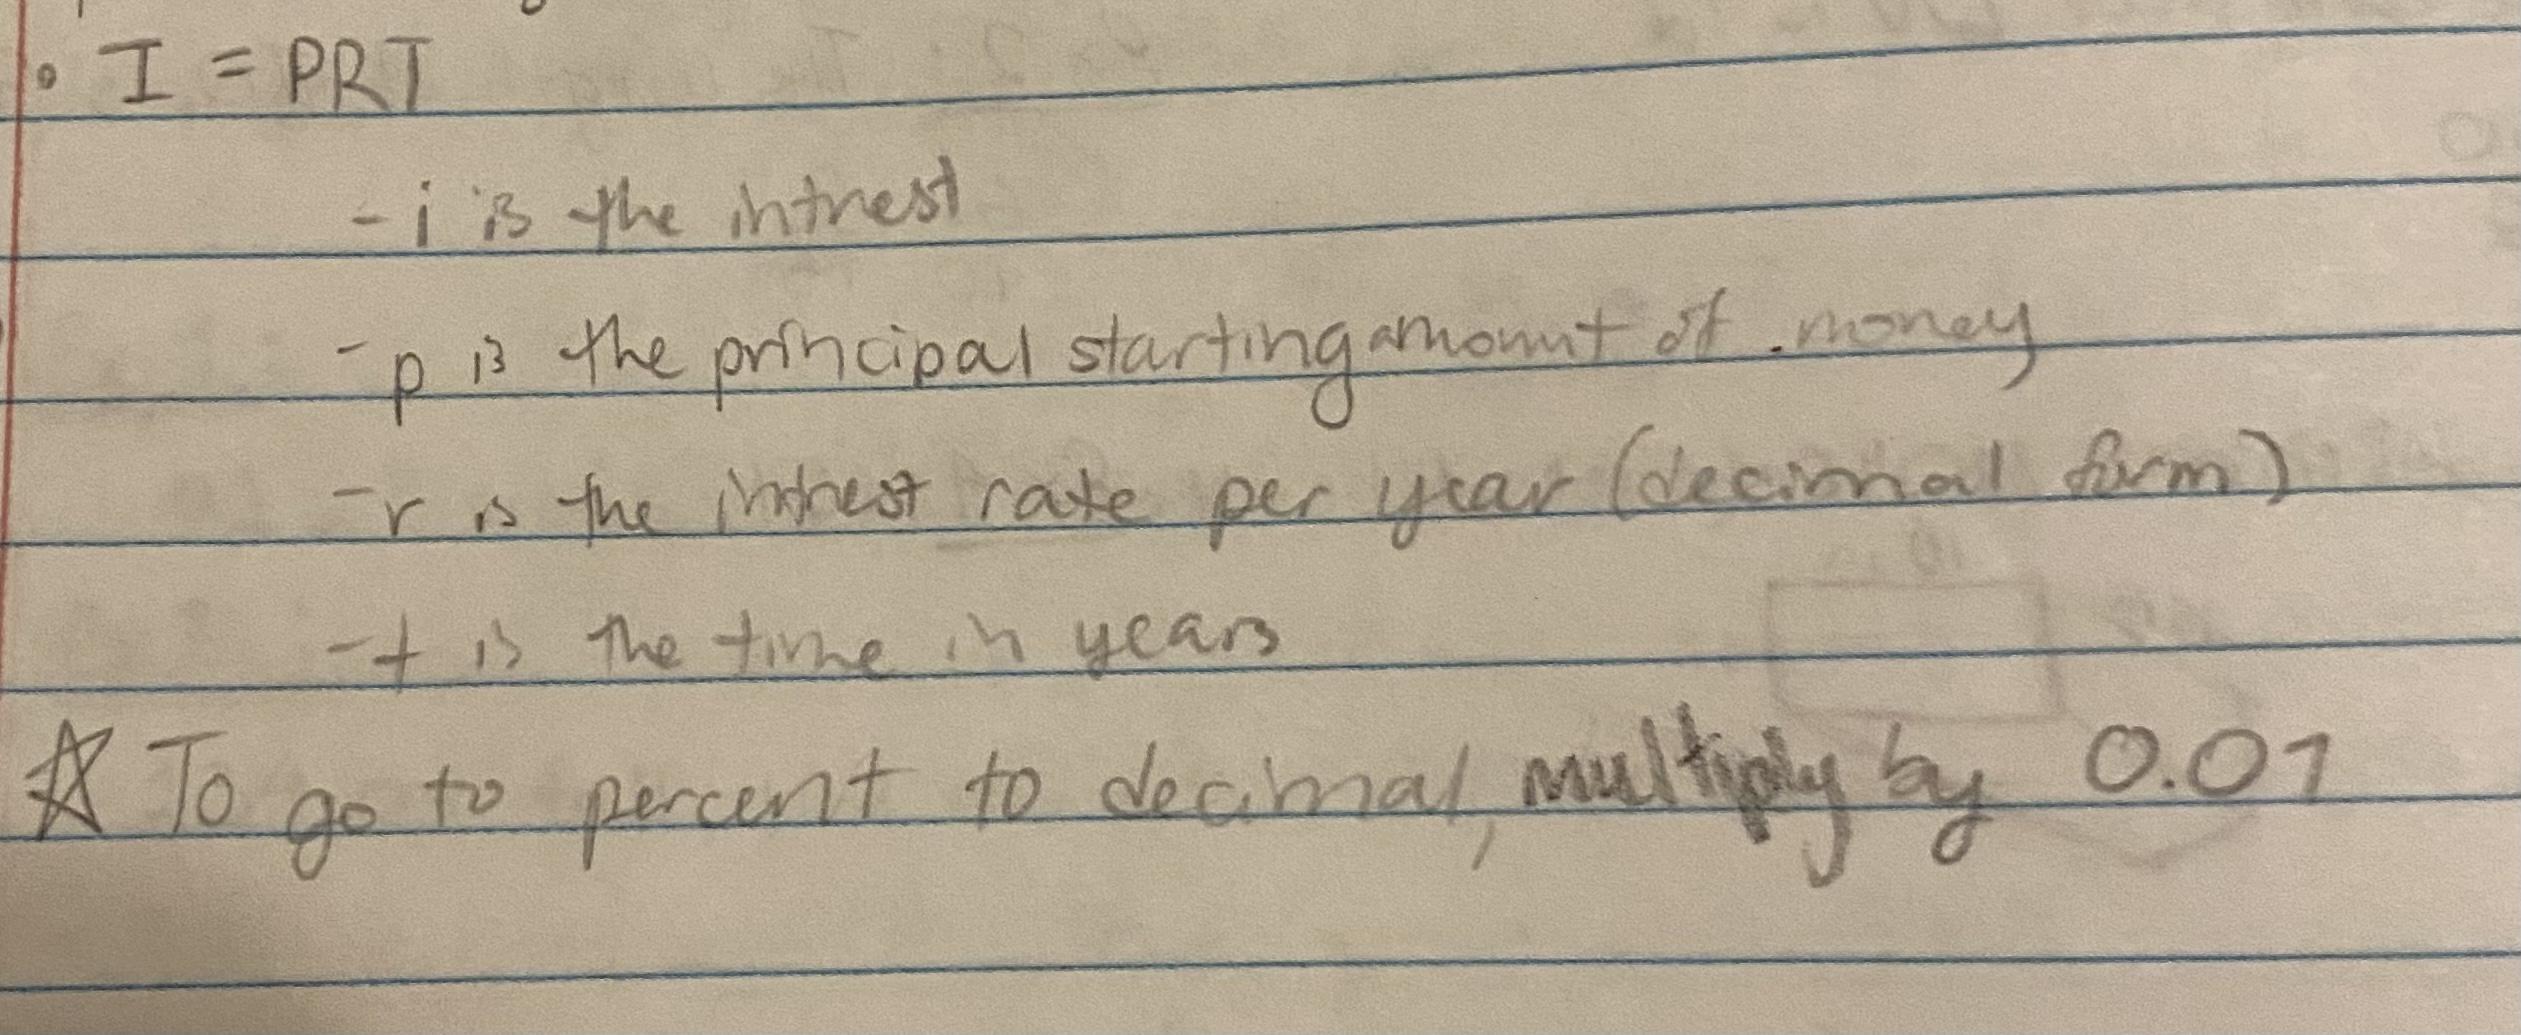 • I = PRT
- i is the intrest
- p is the principal starting amount of money
- r is the intrest rate per year (decimal form)
- t is the time in years
☆ To go to percent to decimal, multiply by 0.01